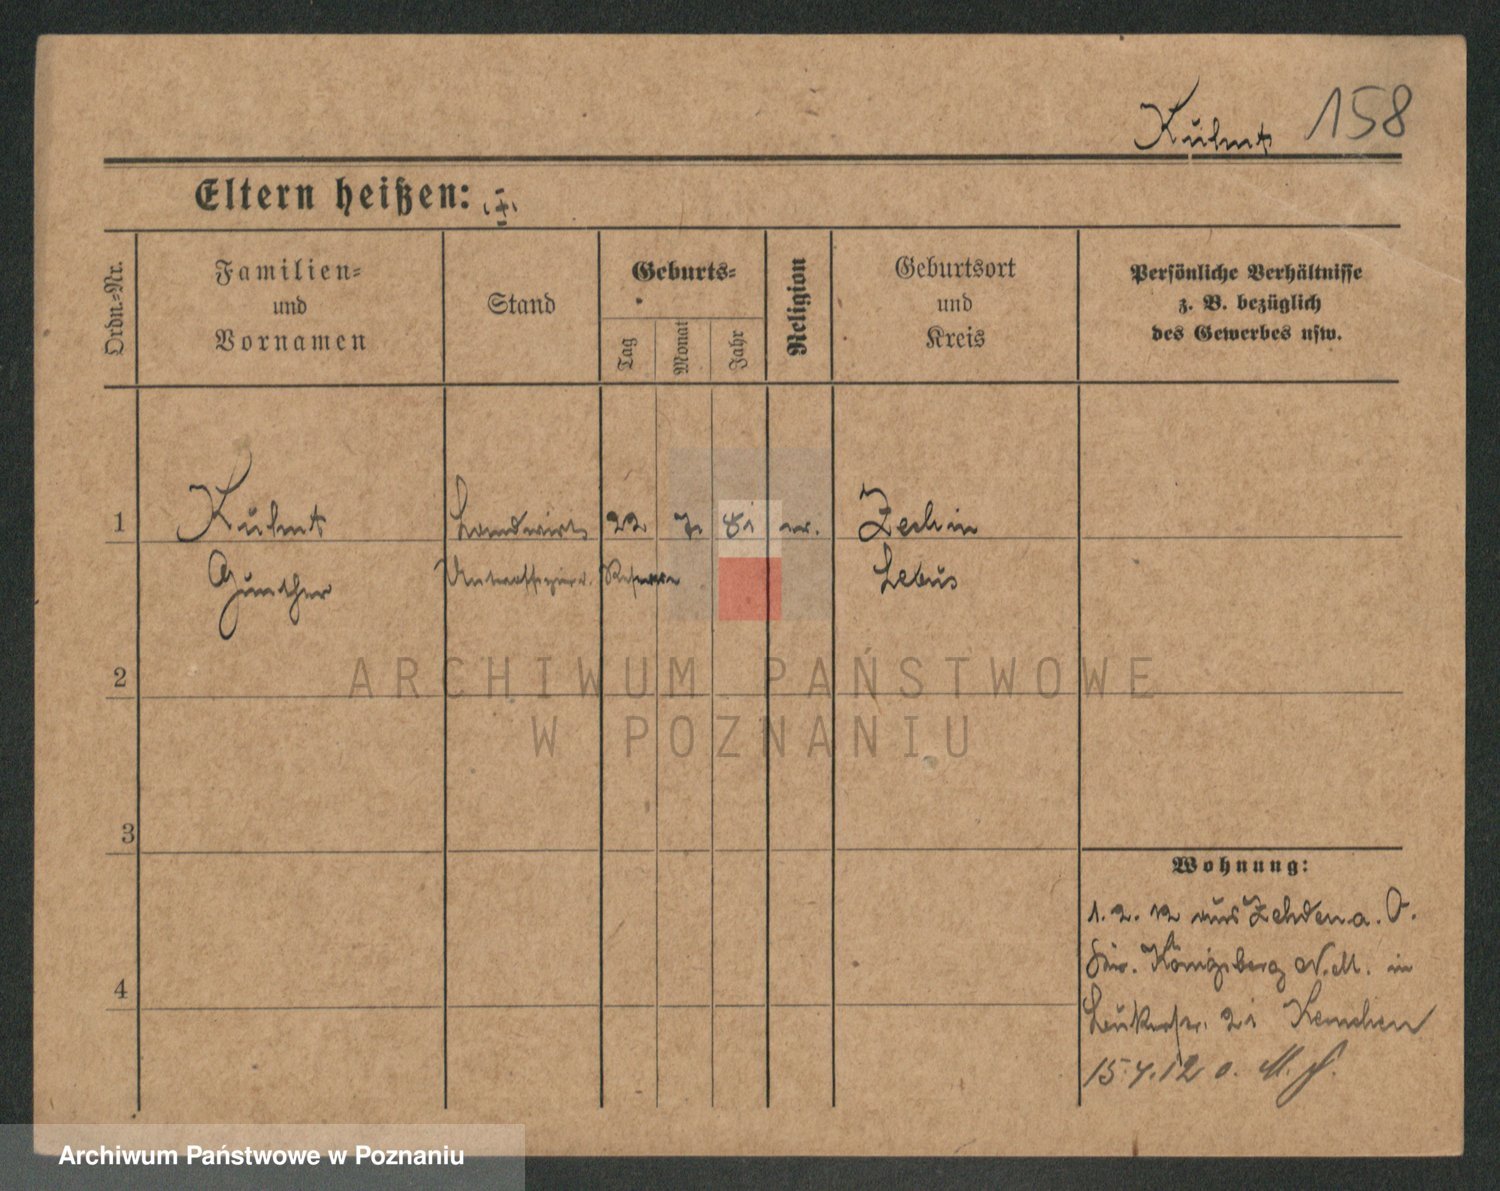 Kuhnt 158
Eltern heißen:
Ordn.-Nr.
Familien-
und
Vornamen
Stand
Geburts-
Tag
Monat
Jahr
Religion
Geburtsort
und
Kreis
Persönliche Verhältnisse
z. B. bezüglich
des Gewerbes usw.
1 Kuhnt Landwirt 22 7. 81 ev. Zechin
Günther Unteroffizier d. Reserve Lebus
2
ARCHIWUM PAŃSTWOWE
W POZNANIU
3
Wohnung:
1. 2. 12 aus Zehden a. O.
Königsberg N.M. in
21 Kemchen
4
15.4.12 o.
Archiwum Państwowe w Poznaniu